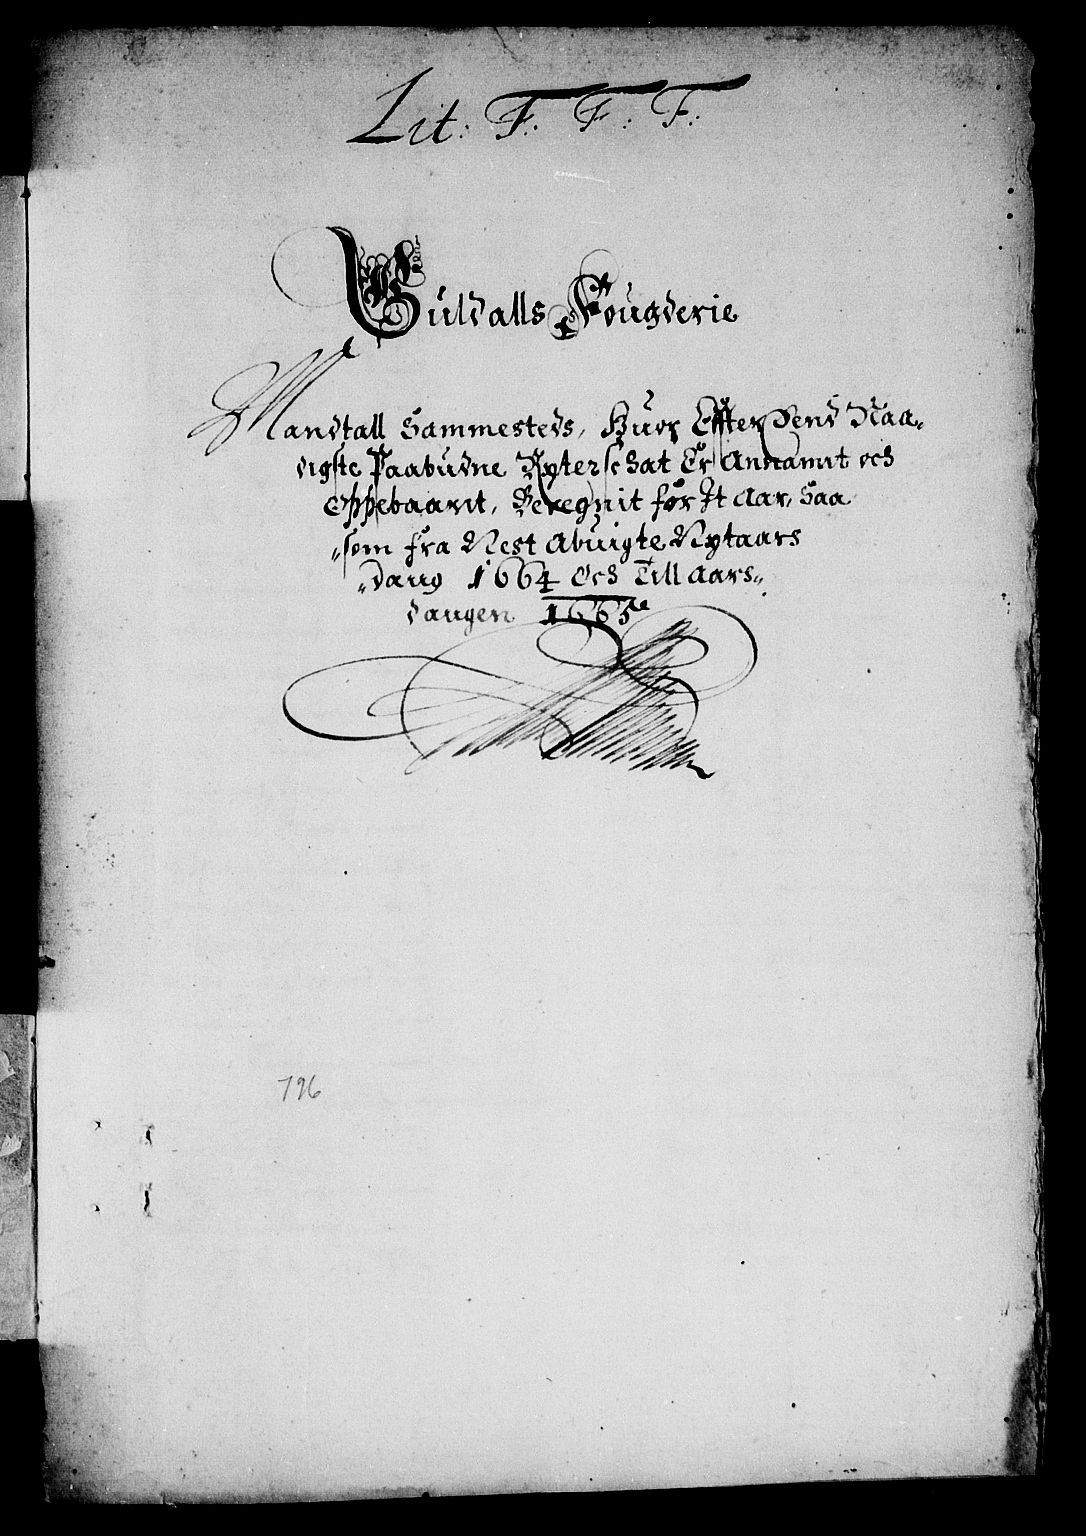 Lit: F: F: F:
Guldalls Fougderie
Mandtall Sammesteds, Huor Effter Dend Naa„
digste Paabudne Rytterschat Er Annamit och
Oppebaarit, Beregnit for It Aar, Saa
„som fra Nest Abuigte Nytaars
„daug 1664 Och Till Aars„
daugen 1665
796